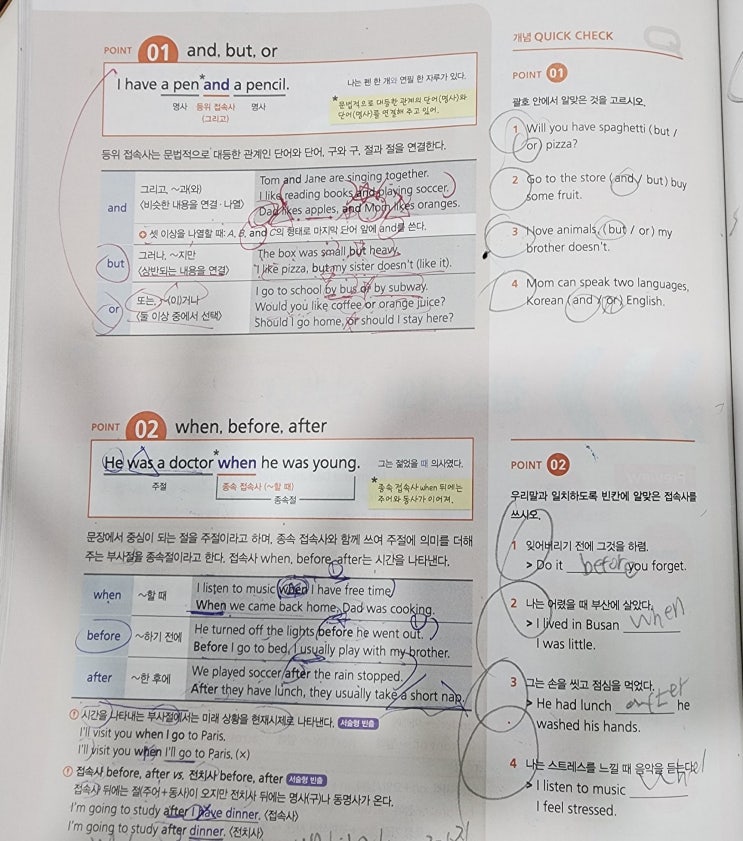 POINT 01 and, but, or
I have a pen* and a pencil.
나는 펜 한 개와 연필 한 자루가 있다.
명사 등위 접속사 명사
(그리고)
* 문법적으로 대등한 관계의 단어(명사)와
단어(명사)를 연결해 주고 있어.
등위 접속사는 문법적으로 대등한 관계인 단어와 단어, 구와 구, 절과 절을 연결한다.
and
그리고, ~과(와)
〈비슷한 내용을 연결·나열〉
Tom and Jane are singing together.
I like reading books and playing soccer.
Dad likes apples, and Mom likes oranges.
셋 이상을 나열할 때: A, B, and C의 형태로 마지막 단어 앞에 and를 쓴다.
but
그러나, ~지만
〈상반되는 내용을 연결〉
The box was small but heavy.
I like pizza, but my sister doesn't (like it).
or
또는, ~(이)거나
〈둘 이상 중에서 선택〉
I go to school by bus or by subway.
Would you like coffee or orange juice?
Should I go home, or should I stay here?
POINT 02 when, before, after
He was a doctor* when he was young.
그는 젊었을 때 의사였다.
주절 종속 접속사 (~할 때)
종속절
* 종속 접속사 when 뒤에는
주어와 동사가 이어져.
문장에서 중심이 되는 절을 주절이라고 하며, 종속 접속사와 함께 쓰여 주절에 의미를 더해
주는 부사절을 종속절이라고 한다. 접속사 when, before, after는 시간을 나타낸다.
when
~할 때
I listen to music when I have free time.
When we came back home, Dad was cooking.
before
~하기 전에
He turned off the lights before he went out.
Before I go to bed, I usually play with my brother.
after
~한 후에
We played soccer after the rain stopped.
After they have lunch, they usually take a short nap.
시간을 나타내는 부사절에서는 미래 상황을 현재시제로 나타낸다. 서술형 빈출
I'll visit you when I go to Paris.
I'll visit you when I'll go to Paris. (×)
접속사 before, after vs. 전치사 before, after 서술형 빈출
접속사 뒤에는 절(주어+동사)이 오지만 전치사 뒤에는 명사(구)나 동명사가 온다.
I'm going to study after I have dinner. 〈접속사〉
I'm going to study after dinner. 〈전치사〉
개념 QUICK CHECK
POINT 01
괄호 안에서 알맞은 것을 고르시오.
1 Will you have spaghetti (but /
or) pizza?
2 Go to the store (and / but) buy
some fruit.
3 I love animals, (but / or) my
brother doesn't.
4 Mom can speak two languages,
Korean (and / or) English.
POINT 02
우리말과 일치하도록 빈칸에 알맞은 접속사를
쓰시오.
1 잊어버리기 전에 그것을 하렴.
> Do it before you forget.
2 나는 어렸을 때 부산에 살았다.
> I lived in Busan when
I was little.
3 그는 손을 씻고 점심을 먹었다.
> He had lunch after he
washed his hands.
4 나는 스트레스를 느낄 때 음악을 듣는다.
> I listen to music
I feel stressed.